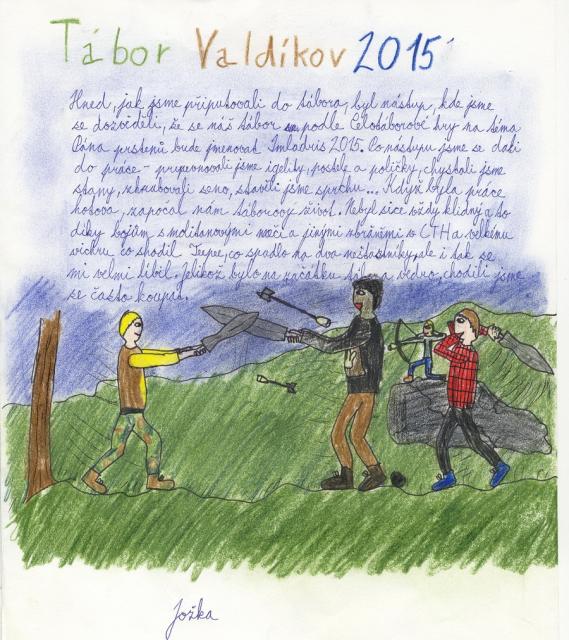 Tábor Valdíkov 2015
Hned, jak jsme připutovali do tábora, byl nástup, kde jsme
se dozvěděli, že se náš tábor podle Celotáborové hry na téma
Pána prstenů bude jmenovat Imladris 2015. Po nástupu jsme se dali
do práce - připevňovali jsme igelity, postele a poličky, chystali jsme
stany, shrabovali seno, stavěli jsme sprchu... Když byla práce
hotova, započal nám táborový život. Nebyl sice vždy klidný a to
díky bojům s molitanovými meči a jinými zbraněmi v CTH a velkému
vichru co shodil Teepee, co spadlo na dva nešťastníky, ale i tak se
mi velmi líbil. Jelikož bylo na začátku tábora vedro, chodili jsme
se často koupat.
Jožka